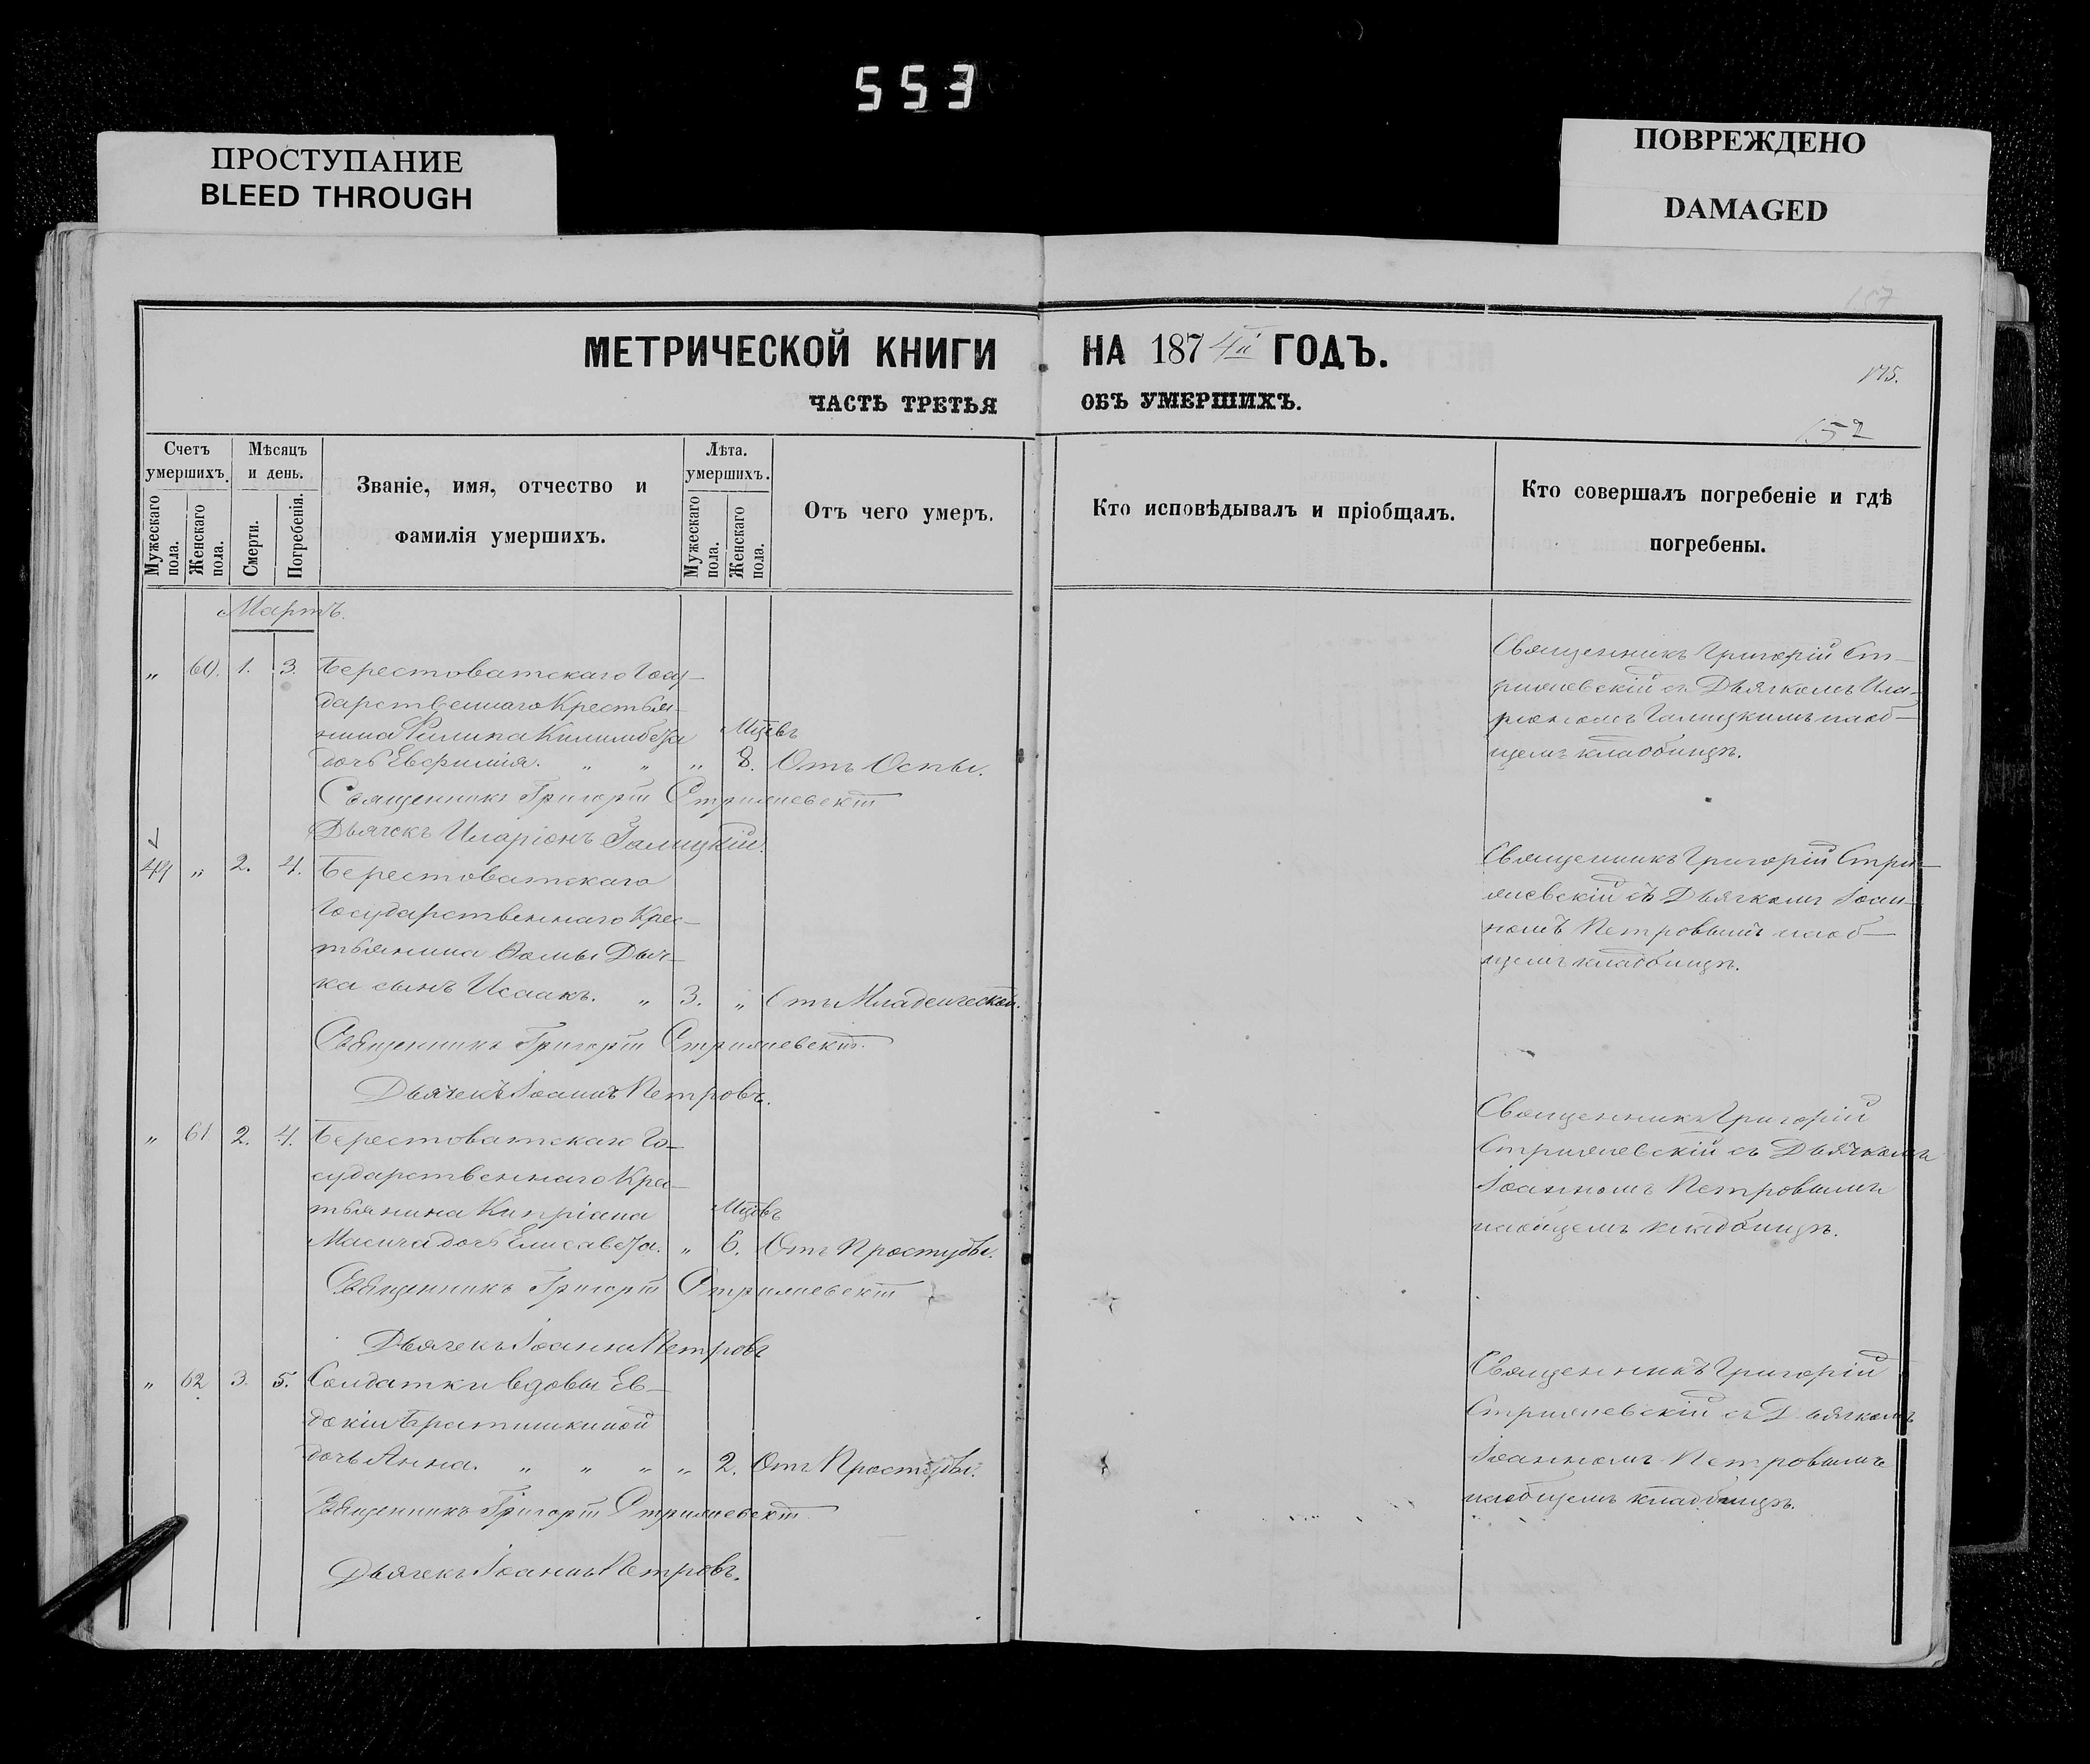 553
ПРОСТУПАНИЕ
BLEED THROUGH
ПОВРЕЖДЕНО
DAMAGED
157
МЕТРИЧЕСКОЙ КНИГИ НА 1874й ГОДЪ.
175.
ЧАСТЬ ТРЕТЬЯ ОБЪ УМЕРШИХЪ.
152
Счетъ умершихъ.
Мужескаго пола.
Женскаго пола.
Мѣсяцъ и день.
Смерти.
Погребенія.
Званіе, имя, отчество и
фамилія умершихъ.
Лѣта. умершихъ.
Мужескаго пола.
Женскаго пола.
Отъ чего умеръ.
Кто исповѣдывалъ и пріобщалъ.
Кто совершалъ погребеніе и гдѣ
погребены.
Мартъ.
„ 60. 1. 3. Берестоватскаго Госу-
дарственнаго Крестья-
нина Филипа
дочь Евфимія. „ „ „ Мцевъ 8. Отъ Оспы.
Священникъ Григорій
Дьячекъ Иларіонъ Галицкій.
Священникъ Григорій
съ Дьячкомъ Ила-
ріономъ Галицкимъ на об-
щемъ кладбищѣ.
49 „ 2. 4. Берестоватскаго
Государственнаго Крес-
тьянина Фомы Дыч-
ка сынъ Исаакъ. „ 3. „ Отъ Младенческой.
Священникъ Григорій
Дьячекъ Іоаннъ Петровъ.
Священникъ Григорій
съ Дьячкомъ Іоан-
номъ Петровымъ на об-
щемъ кладбищѣ.
„ 61 2. 4. Берестоватскаго Го-
сударственнаго Крес-
тьянина Кипріана Мцевъ
Масича дочь Елисавета. „ 6. Отъ Простуды.
Священникъ Григорій
Дьячекъ Іоаннъ Петровъ
Священникъ Григорій
съ Дьячкомъ
Іоанномъ Петровымъ
на общемъ кладбищѣ.
„ 62 3. 5. Солдатки вдовы Ев-
докіи Братишкиной
дочь Анна. „ „ „ „ 2. Отъ Простуды.
Священникъ Григорій
Дьячекъ Іоаннъ Петровъ.
Священникъ Григорій
съ Дьячкомъ
Іоанномъ Петровымъ
на общемъ кладбищѣ.